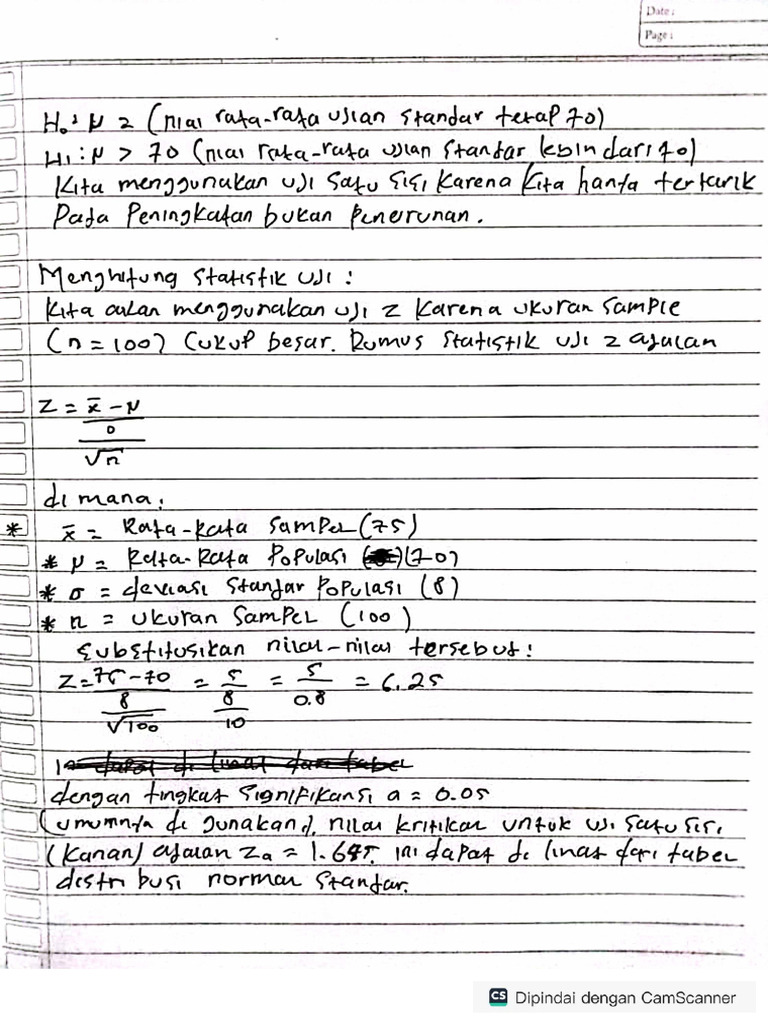 Date:
Page:
H₀: μ = (nilai rata-rata ujian standar tetap 70)
H₁: μ > 70 (nilai rata-rata ujian standar lebih dari 70)
Kita menggunakan uji satu sisi karena kita hanya tertarik
Pada Peningkatan bukan Penurunan.
Menghitung statistik uji:
Kita akan menggunakan uji z karena ukuran sample
(n = 100) cukup besar. Rumus statistik uji z adalah
Z = x̄ - μ
σ
√n
di mana:
* x̄ = Rata-Rata Sampel (75)
* μ = Rata-Rata Populasi (70)
* σ = deviasi standar Populasi (8)
* n = ukuran Sampel (100)
Substitusikan nilai-nilai tersebut:
Z = 75-70 = 5 = 5 = 6.25
8 8 0.8
√100 10
dengan tingkat signifikansi a = 0.05
(umumnya di gunakan), nilai kritikal untuk uji satu sisi
(kanan) adalah Za = 1.645. ini dapat di lihat dari tabel
distribusi normal standar.
CS Dipindai dengan CamScanner